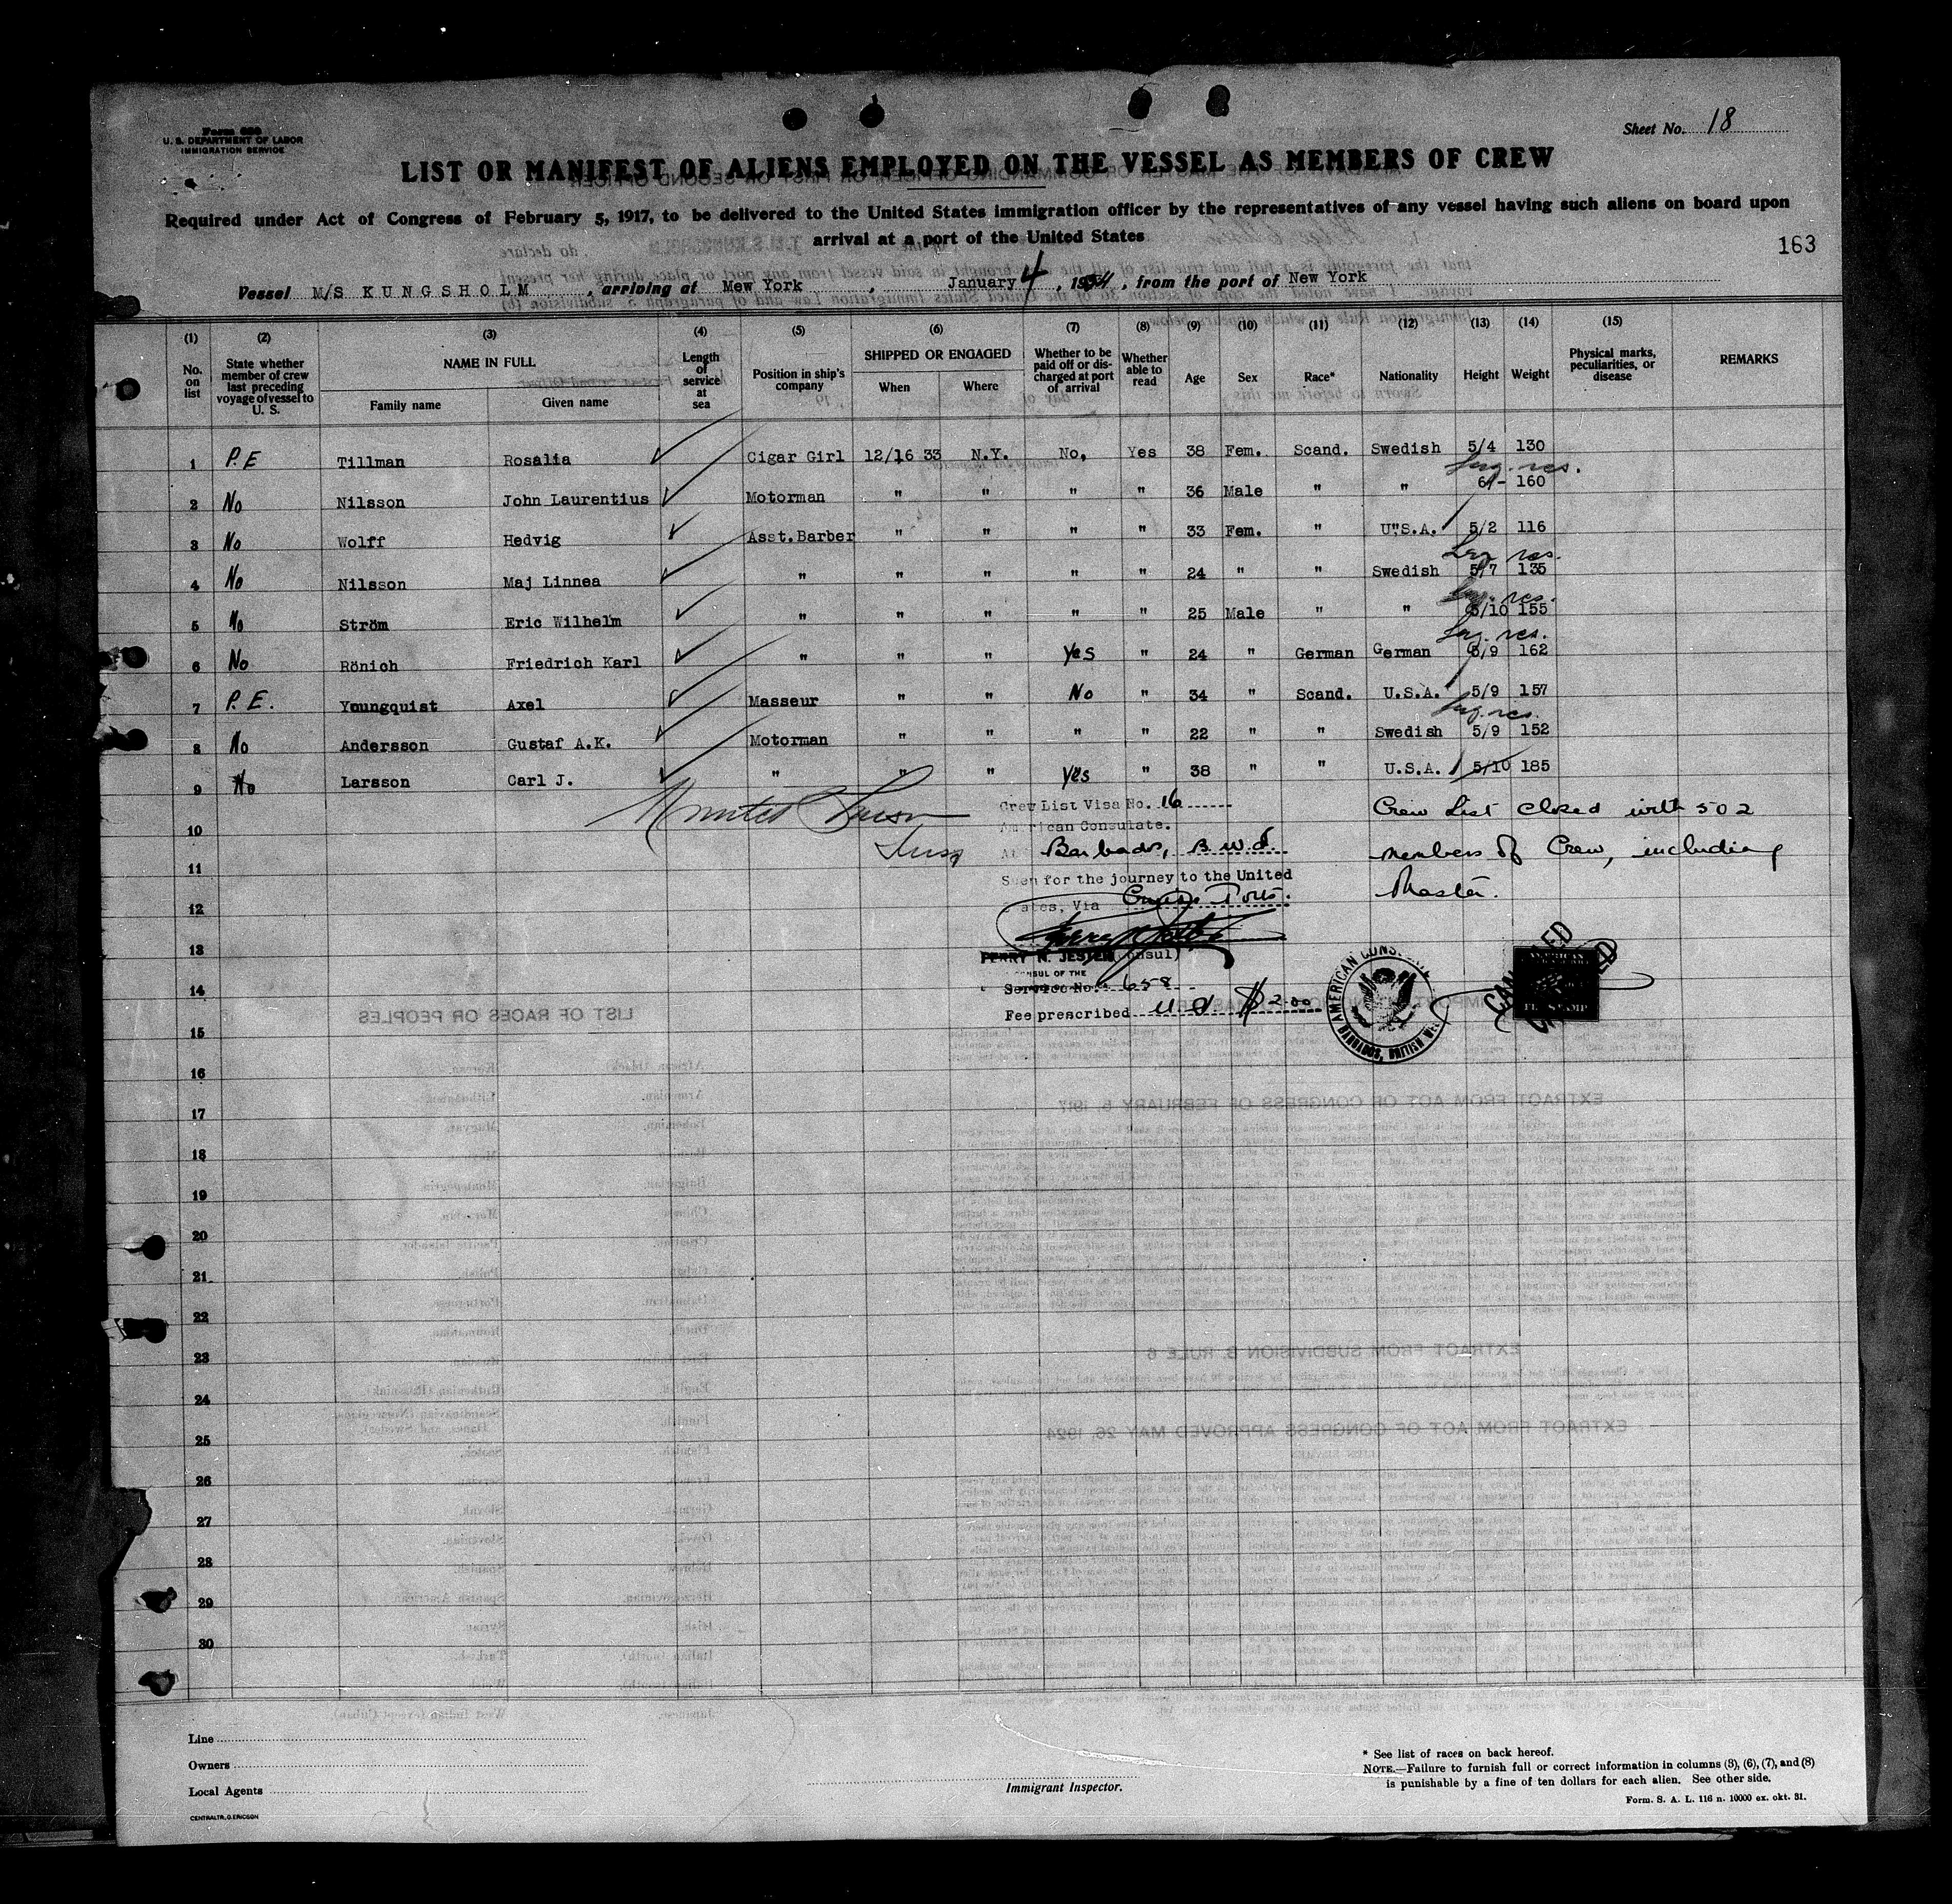 Form 689
U. S. DEPARTMENT OF LABOR
IMMIGRATION SERVICE
Sheet No. 18
LIST OR MANIFEST OF ALIENS EMPLOYED ON THE VESSEL AS MEMBERS OF CREW
Required under Act of Congress of February 5, 1917, to be delivered to the United States immigration officer by the representatives of any vessel having such aliens on board upon
arrival at a port of the United States
163
Vessel M/S KUNGSHOLM, arriving at Mew York, January 4, 1934, from the port of New York
(1) (2) (3) (4) (5) (6) (7) (8) (9) (10) (11) (12) (13) (14) (15)
No. on list
State whether member of crew last preceding voyage of vessel to U. S.
NAME IN FULL
Family name Given name
Length of service at sea
Position in ship's company
SHIPPED OR ENGAGED
When Where
Whether to be paid off or discharged at port of arrival
Whether able to read
Age Sex Race* Nationality Height Weight
Physical marks, peculiarities, or disease
REMARKS
1 P.E Tillman Rosalia Cigar Girl 12/16 33 N.Y. No, Yes 38 Fem. Scand. Swedish 5/4 130
2 No Nilsson John Laurentius Motorman " " " " 36 Male " " 6/- 160
3 No Wolff Hedvig Asst. Barber " " " " 33 Fem. " U.S.A. 5/2 116
4 No Nilsson Maj Linnea " " " " " 24 " " Swedish 5/7 135
5 No Ström Eric Wilhelm " " " " " 25 Male " " 5/10 155
6 No Rönich Friedrich Karl " " " Yes " 24 " German German 5/9 162
7 P.E. Youngquist Axel Masseur " " No " 34 " Scand. U.S.A. 5/9 157
8 No Andersson Gustaf A.K. Motorman " " " " 22 " " Swedish 5/9 152
9 No Larsson Carl J. " " " Yes " 38 " " U.S.A. 5/10 185
10
11
12
13
14
15
16
17
18
19
20
21
22
23
24
25
26
27
28
29
30
Crew List Visa No. 16
American Consulate.
At Barbados, B.W.I.
Seen for the journey to the United
States, Via
PERRY N. JESTER Consul)
CONSUL OF THE
Service No. 658
Fee prescribed U.S. $2.00
Crew List closed with 502
members of Crew, including
Master.
AMERICAN CONSULATE
BARBADOS, BRITISH W.I.
CANCELLED
Line
Owners
Local Agents
CENTRALTR. G. ERICSON
Immigrant Inspector.
* See list of races on back hereof.
NOTE.—Failure to furnish full or correct information in columns (3), (6), (7), and (8)
is punishable by a fine of ten dollars for each alien. See other side.
Form. S. A. L. 116 n. 10000 ex. okt. 31.